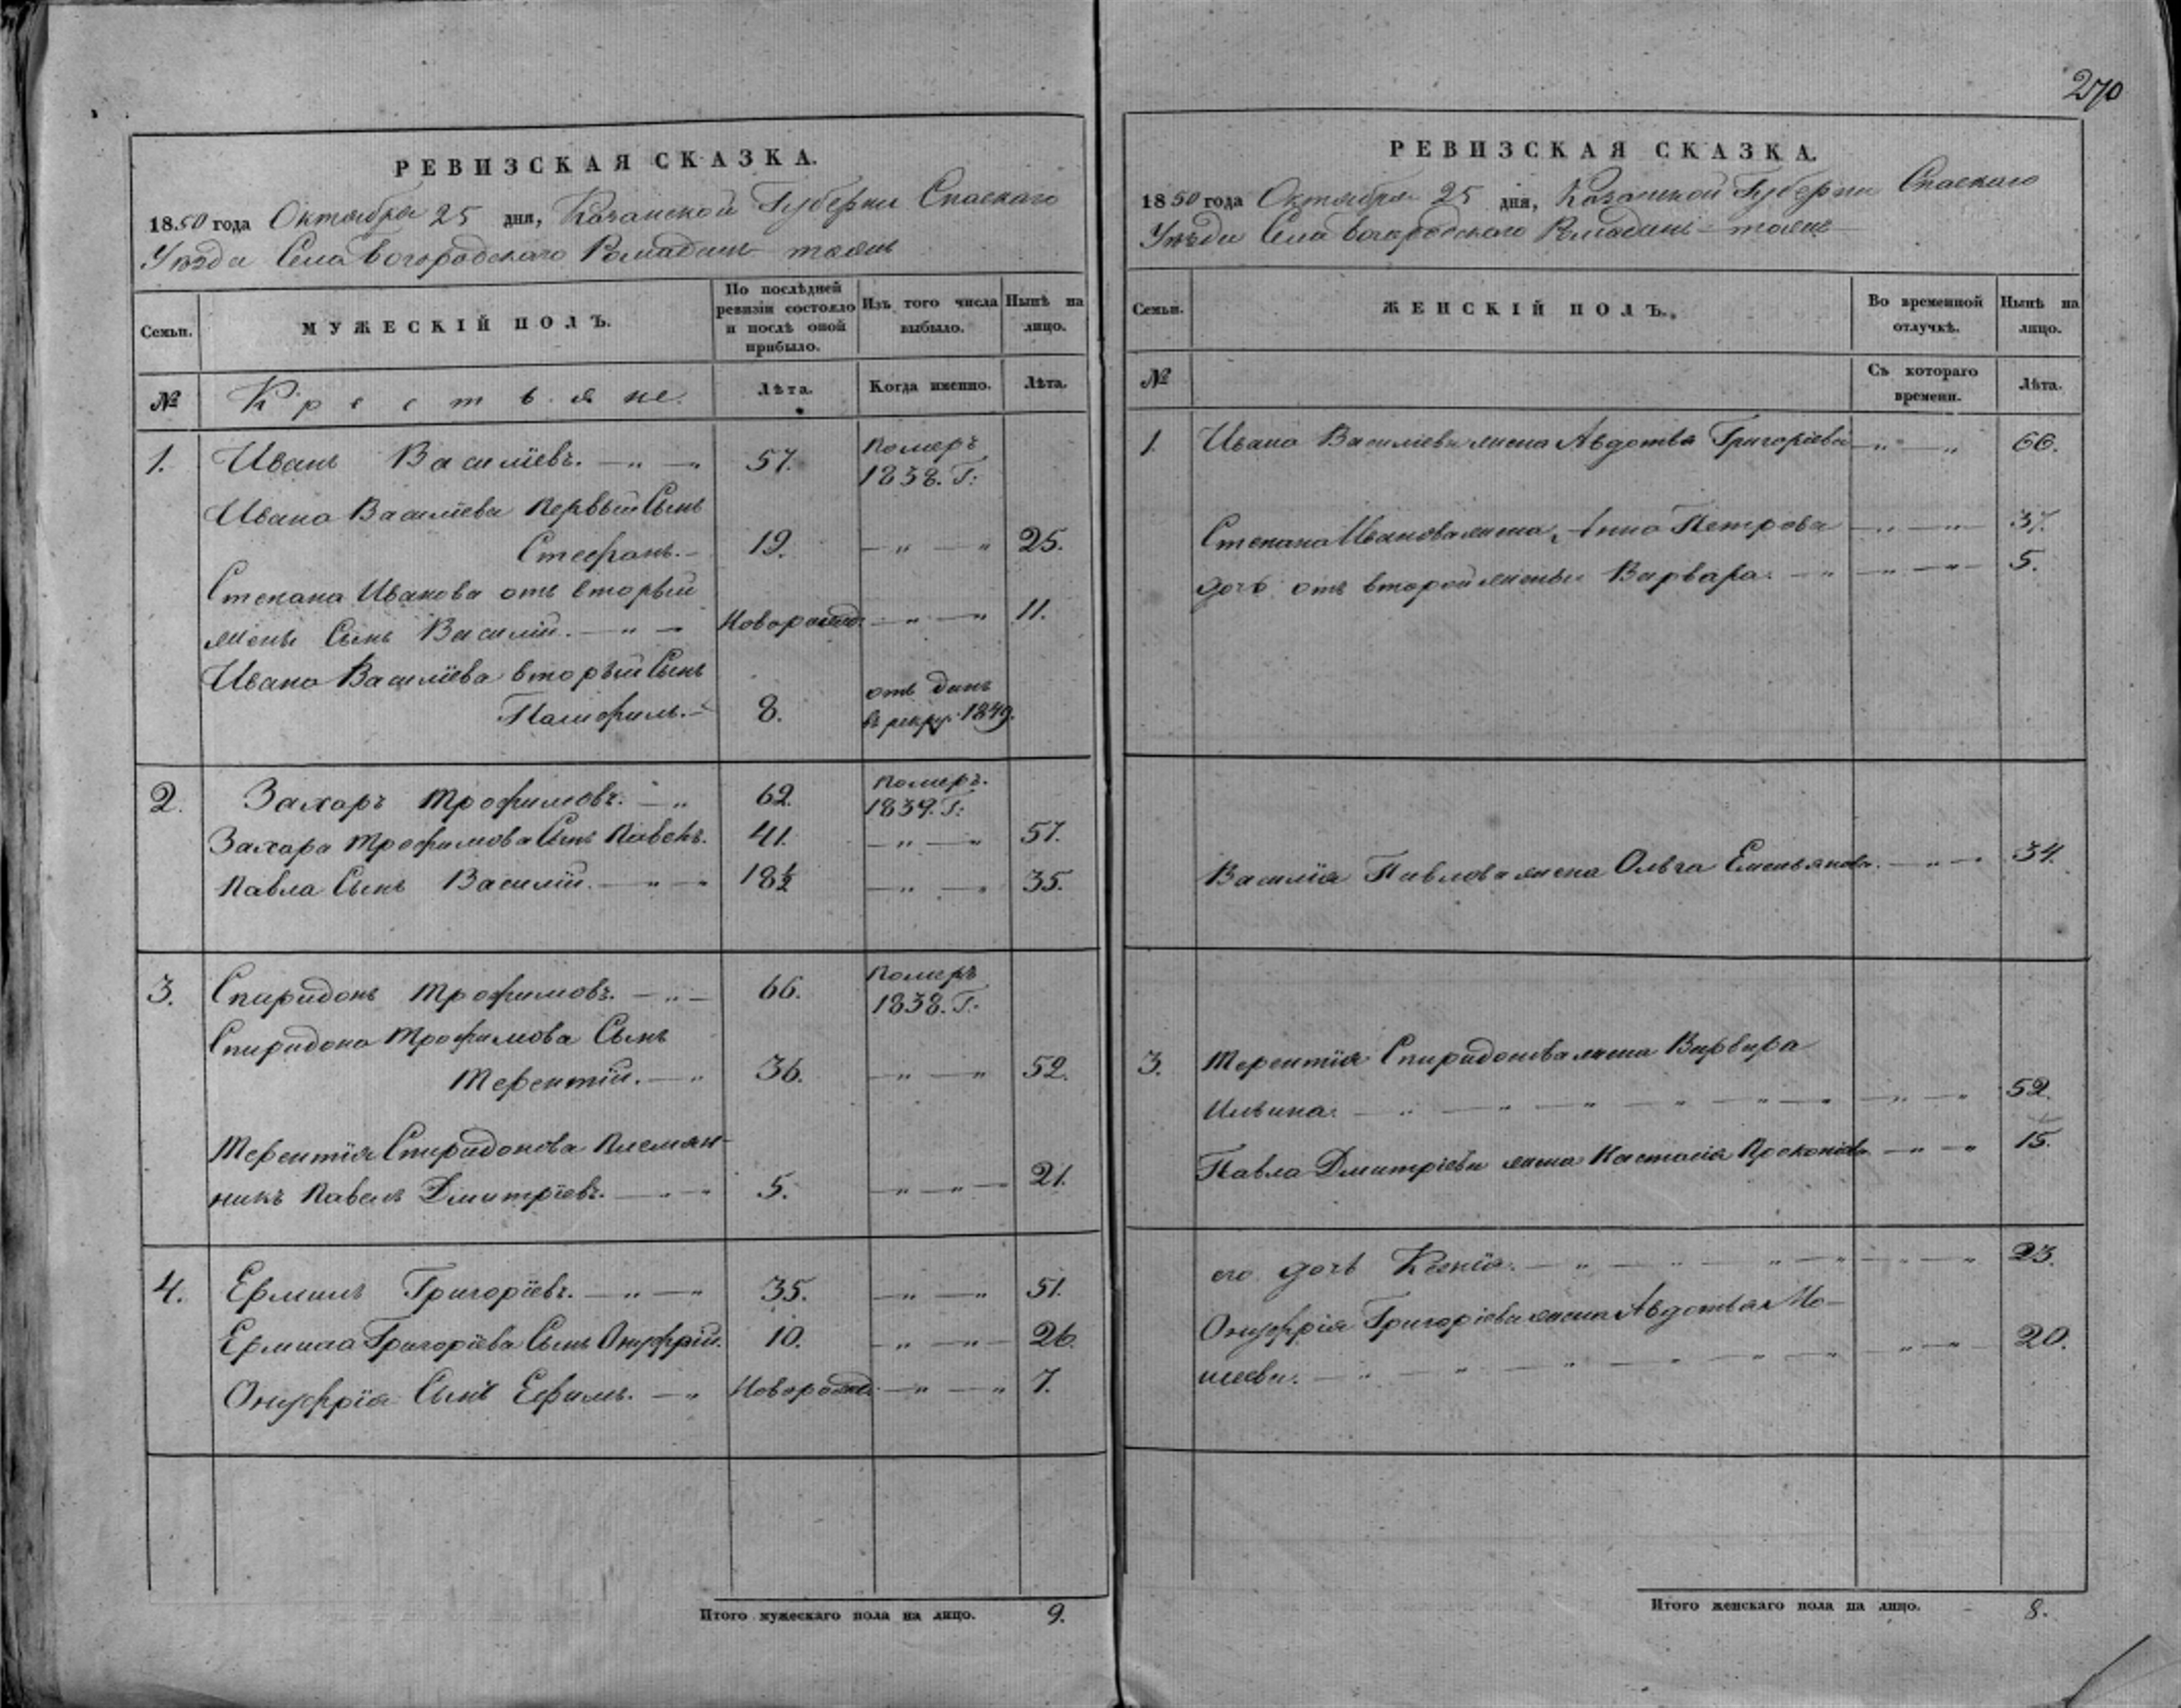 270
РЕВИЗСКАЯ СКАЗКА.
1850 года Октября 25 дня, Казанской Губернии Спаскаго
Уѣзда Села Богородскаго Рамадань тожъ
Семьи.
МУЖЕСКІЙ ПОЛЪ.
По послѣдней ревизіи состояло и послѣ оной прибыло.
Изъ того числа выбыло.
Нынѣ на лицо.
№
Крестьяне.
Лѣта.
Когда именно.
Лѣта.
1. Иванъ Василіевъ. — „ — „ 57. Померъ 1838. Г:
Ивана Василіева первый Сынъ
Стефанъ. — 19. — „ — „ 25.
Степана Иванова отъ вторый
жены Сынъ Василій. — „ — Новорожд: — „ — „ 11.
Ивана Василіева вторый Сынъ
Памфилъ. — 8. отъ данъ въ рекру. 1849.
2. Захаръ Трофимовъ. — „ 62. Померъ. 1839. Г:
Захара Трофимова Сынъ Павелъ. 41. — „ — „ 57.
Павла Сынъ Василій. — „ — „ 18½ — „ — „ 35.
3. Спиридонъ Трофимовъ. — „ — 66. Померъ 1838. Г:
Спиридона Трофимова Сынъ
Терентій. — „ 36. — „ — „ 52.
Терентія Спиридонова племян-
никъ Павелъ Дмитріевъ. — „ — „ 5. — „ — „ — 21.
4. Ермилъ Григоріевъ. — „ — „ 35. — „ — „ 51.
Ермила Григоріева Сынъ Онуфрій. 10. — „ — „ — 26.
Онуфрія Сынъ Ефимъ. — „ Новорожд. — „ — „ 7.
Итого мужескаго пола на лицо. 9.
РЕВИЗСКАЯ СКАЗКА.
1850 года Октября 25 дня, Казанской Губернии Спаскаго
Уѣзда Села Богородскаго Рамадань тожъ
Семьи.
ЖЕНСКІЙ ПОЛЪ.
Во временной отлучкѣ.
Нынѣ на лицо.
№
Съ котораго времени.
Лѣта.
1. Ивана Василіева жена Авдотья Григоріева — „ — „ 66.
Степана Иванова жена, Анна Петрова — „ — „ — 37.
дочь отъ второй жены Варвара. — „ — „ — „ — 5.
Василія Павлова жена Ольга Емельянова. — „ — „ 34.
3. Терентія Спиридонова жена Варвара
Ильина. — „ — „ — „ — „ — „ — „ — „ 52.
Павла Дмитріева жена Настасія Прокопіева. — „ — „ 15.
его дочь Ксенія. — „ — „ — „ — „ — „ 23.
Онуфрія Григоріева жена Авдотья Мо-
исеева. — „ — „ — „ — „ — „ — „ — 20.
Итого женскаго пола на лицо. 8.